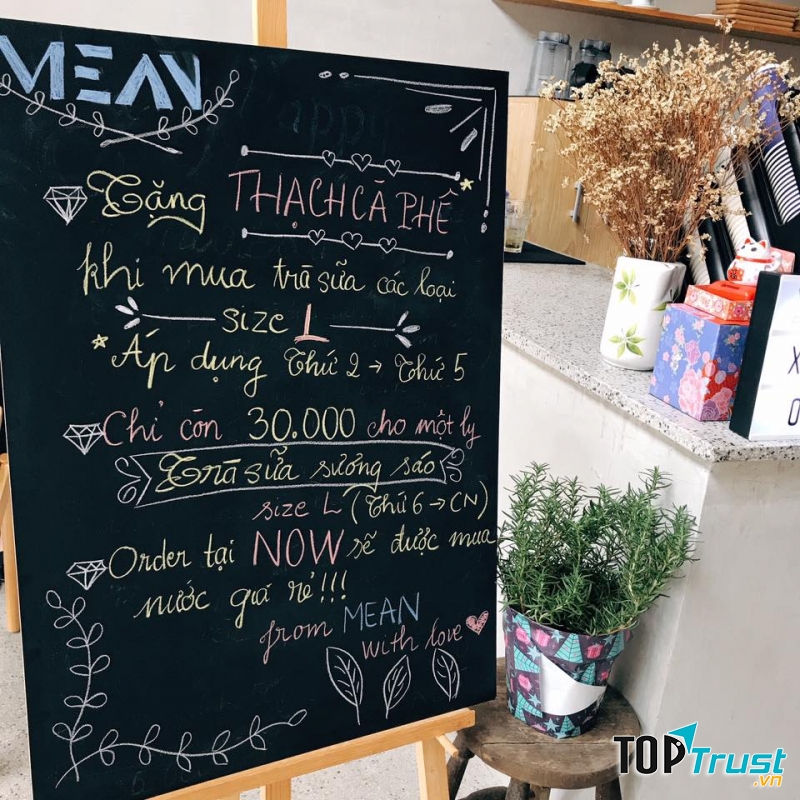 MEAN
Tặng THẠCH CÀ PHÊ
khi mua trà sữa các loại
size L
* Áp dụng Thứ 2 → Thứ 5
Chỉ còn 30.000 cho một ly
Trà sữa sương sáo
size L (Thứ 6 → CN)
Order tại NOW sẽ được mua
nước giá rẻ!!!
from MEAN
with love
X
O
TOPTrust.vn